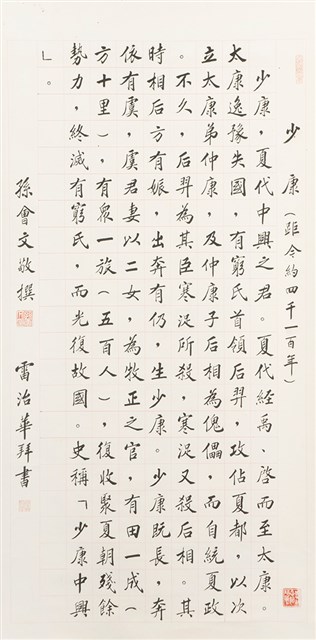 少康(距今約四千一百年)
少康,夏代中興之君。夏代經禹、啓而至太康。
太康逸豫失國,有窮氏首領后羿,攻佔夏都,以次
立太康弟仲康,及仲康子后相為傀儡,而自統夏政
。不久,后羿為其臣寒浞所殺,寒浞又殺后相。其
時相后方有娠,出奔有仍,生少康。少康既長,奔
依有虞,虞君妻以二女,為牧正之官,有田一成(
方十里),有眾一旅(五百人),復收聚夏朝殘餘
勢力,終滅有窮氏,而光復故國。史稱「少康中興
」。
孫會文敬撰 雷治華拜書